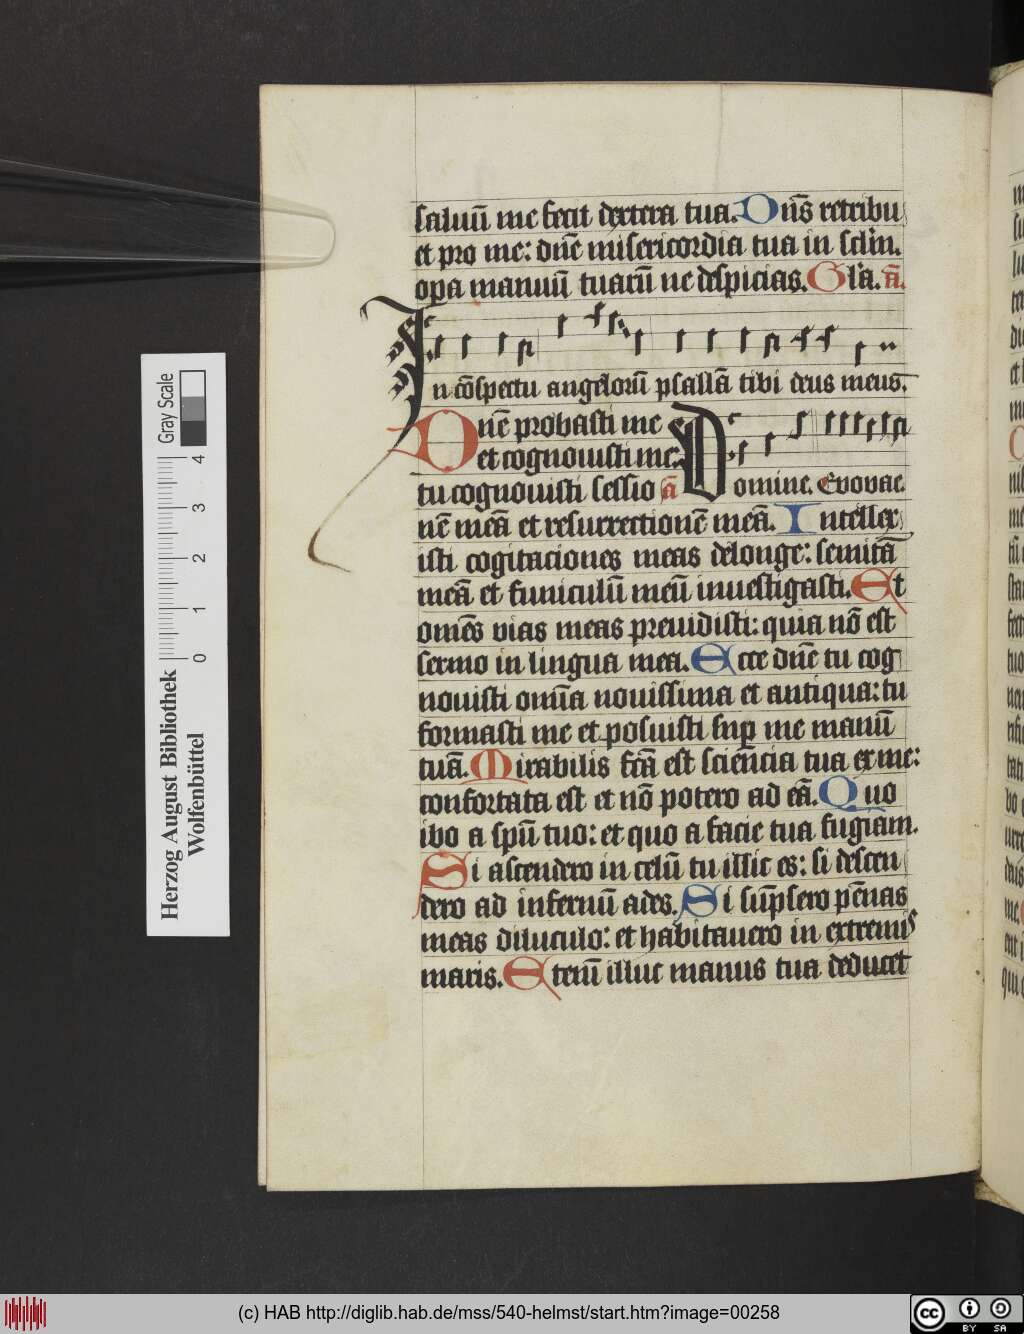 saluū me fecit dextera tua. Dn̄s retribu
et pro me: dn̄e misericordia tua in sclm̄.
opa manuū tuarū ne despicias. Gl'a. a̅.
In cōspectu angelorū psallā tibi deus meus.
Dn̄e probasti me
et cognouisti me:
tu cognouisti sessio a̅ Domine. Euouae.
nē meā et resurrectionē meā. Intellex
isti cogitaciones meas delonge: semitā
meā et funiculū meū inuestigasti. Et
omēs vias meas preuidisti: quia nō est
sermo in lingua mea. Ecce dn̄e tu cog
nouisti omīa nouissima et antiqua: tu
formasti me et posuisti sup me manū
tuā. Mirabilis fcā est sciencia tua ex me:
confortata est et nō potero ad eā. Quo
ibo a spū tuo: et quo a facie tua fugiam.
Si ascendero in celū tu illic es: si descen
dero ad infernū ades. Si sūpsero pēnas
meas diluculo: et habitauero in extremis
maris. Etenī illuc manus tua deducet
Herzog August Bibliothek
Wolfenbüttel
Gray Scale
0 1 2 3 4
(c) HAB http://diglib.hab.de/mss/540-helmst/start.htm?image=00258
cc BY SA